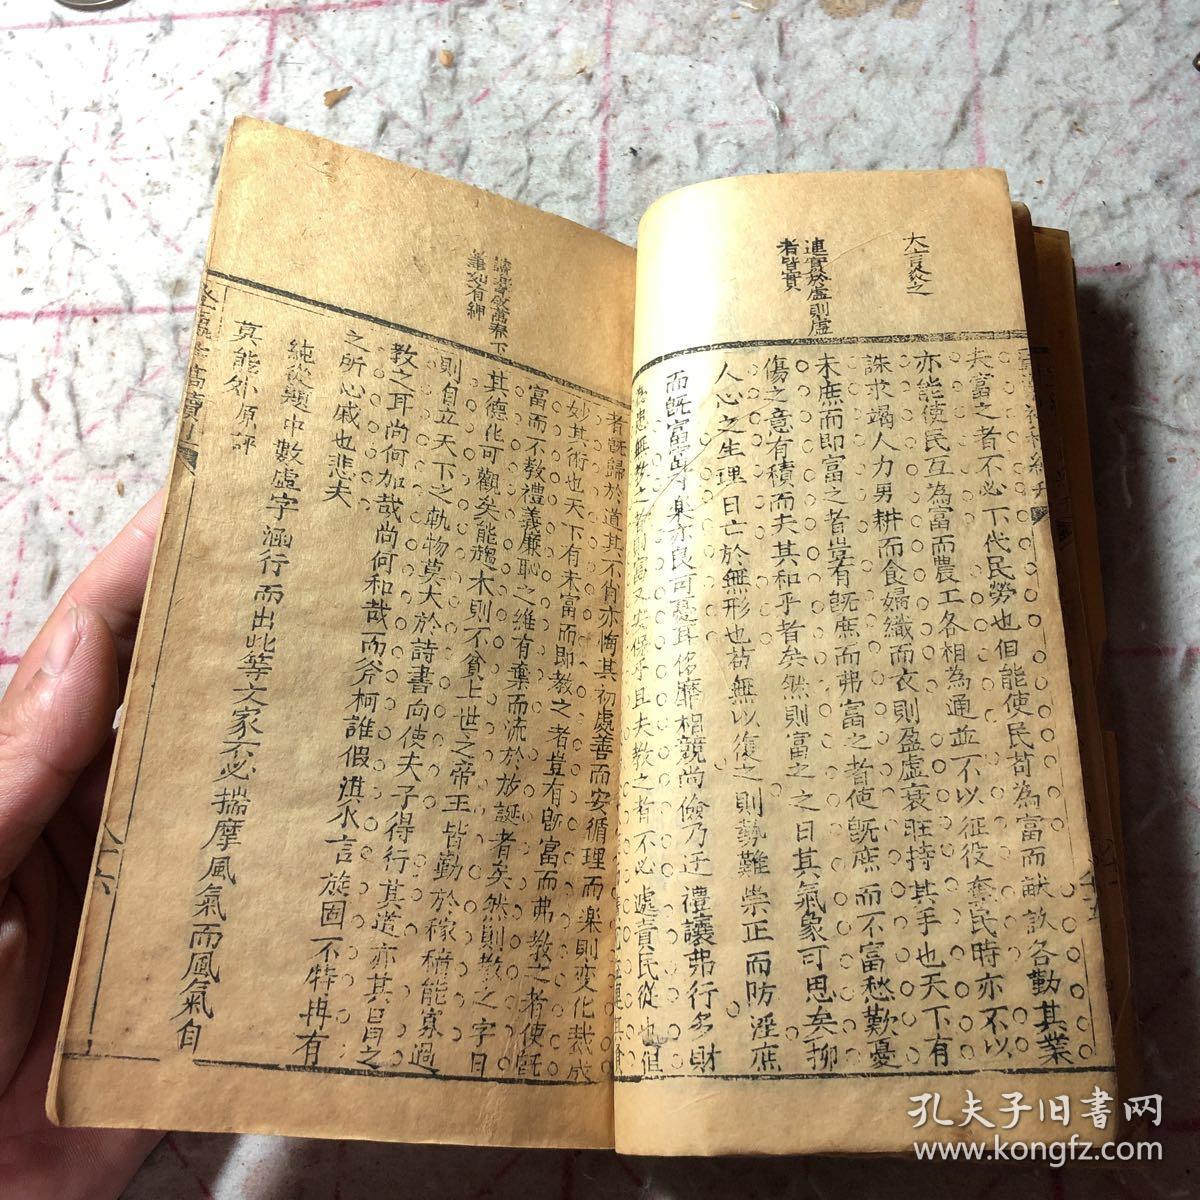 大言炎之
連實於虛則虛
者皆實
夫富之者不必下代民勞也但能使民苟為富而畎畝各勤其業
亦能使民互為富而農工各相為通並不以征役奪民時亦不以
誅求竭人力男耕而食婦織而衣則盈虛衰旺持其手也天下有
未庶而即富之者豈有既庶而弗富之者使既庶而不富愁歎憂
傷之意有積而夫其和乎者矣然則富之之日其氣象可思矣抑
人心之生理日亡於無形也苟無以復之則勢難崇正而防淫庶
而既富富其樂亦良可憂耳侈靡相競尚儉乃迂禮讓弗行多財
無教之則富又安保乎且夫教之者不必遽責民從也但
下
筆如有紳
者既歸於道其不肖亦悔其初處善而安循理而樂則变化裁成
妙其術也天下有未富而即教之者豈有既富而弗教之者使既
富而不教禮義廉恥之維有棄而流於放誕者矣然則教之之字日
其德化可觀矣能趨木則不貪上世之帝王皆勤於稼穡能寡過
則自立天下之軌物莫大於詩書向使夫子得行其道亦其旨之
教之耳尚何加哉尚何和哉而斧柯誰假洪水言旋固不特冉有
之所心戚也悲夫
純從題中數虛字涵行而出此等文家不必揣摩風氣而風氣自
莫能外 原評
十六
孔夫子旧書网
www.kongfz.com